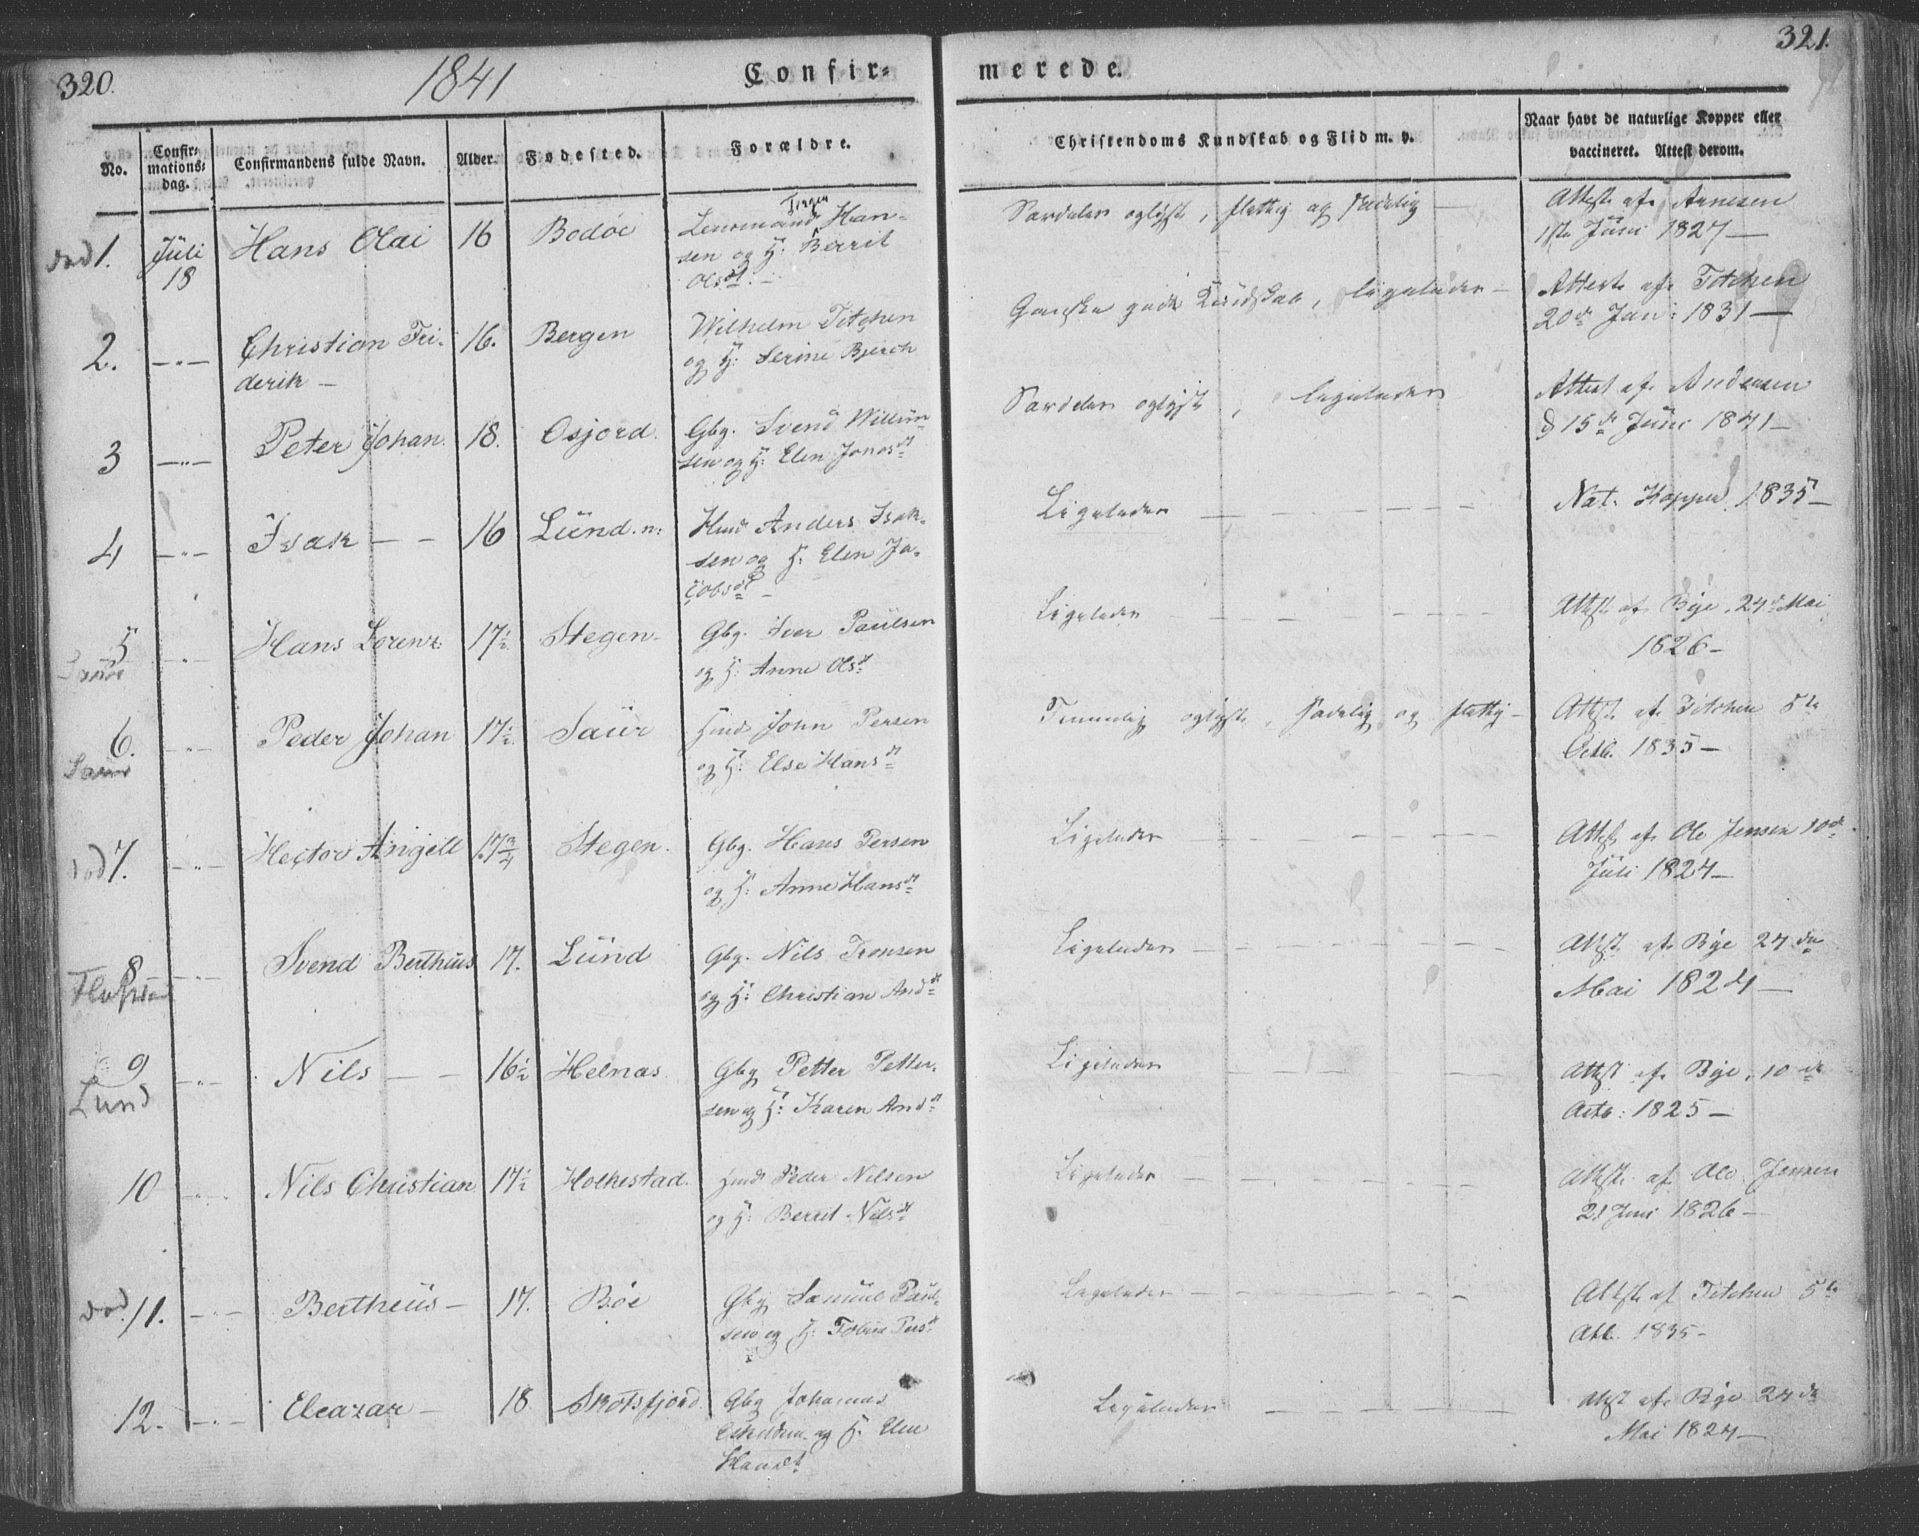 320.
1841
Confir-
merede.
321.
No.
Confir-
mations-
dag.
Confirmandens fulde Navn.
Alder.
Fodested.
Forældre.
Christendoms Kundskab og Flid m. v.
Naar havt de naturlige Kopper eller
vaccineret. Attest derom.
død 1.
Juli
18
Hans Olai
16
Bodøe
Lensmand Han-
sen og H: Berrit
Olsdt. -
Særdeles oplyst, flittig og sædelig -
Attest af Arnesen
1ste Juni 1827 -
2.
- " -
Christian Fri-
derik -
16.
Bergen
Wilhelm Totchen
og H: Serine Bjerch
Ganske god Kundskab, ligeledes -
Attest af Totchen
20de Jan: 1831 -
3
- " -
Peter Johan
18.
Osjord.
Gbg. Svend Willum-
sen og H: Elen Jonasdt
Særdeles oplyst, ligeledes
Attest af Andersen
d 15de Juni 1841 -
4
- " -
Isak - -
16
Lund. n:
Huusd Anders Isak-
sen og H: Elen Ja-
cobsdt -
Ligeledes - - - - -
Nat. Kopper 1835 -
5
- " -
Hans Lorenz
17 1/2
Stegen -
Gbg. Iver Paulsen
og H: Anne Olsdt
Ligeledes - - - - -
Attest af Bye, 24de Mai
1826 -
6.
Saur
- " -
Peder Johan
17 1/2.
Saur
Huusd John Persen
og H: Else Hansdt
Temmelig oplyst, sædelig og flittig -
Attest af Totchen 5te
Octb. 1835 -
død 7.
- " -
Hector Angell
17 3/4
Stegen.
Gbg. Hans Persen
og H: Anne Hansdt
Ligeledes - - - - -
Attest af Ole Jensen 10de
Juli 1824 -
8
- " -
Svend Bertheus
17.
Lund
Gbg. Nils Tronsen
og H: Christian Andsdt
Ligeledes - - - - -
Attest af Bye 24de
Mai 1824 -
9
Lund
- " -
Nils - -
16 1/2
Helnæs.
Gbg Petter Petter-
sen og H: Karen Anddt
Ligeledes - - - - -
Attest af Bye, 10de
Octb: 1825 -
10
- " -
Nils Christian
17 1/2
Holkestad.
Huusd Peder Nilsen
og H: Berret Nilsdt
Ligeledes - - - - -
Attest af Ole Jensen
21 Juni 1826 -
død. 11.
- " -
Bertheus -
17.
Bøe
Gbg Samuel Paul-
sen og H: Persdt
Ligeledes - - - - -
Attest af Totchen 5te
1835 -
12.
- " -
Eleazar -
18
Skotsfjord.
Gbg Johannes
og H. Elen
Hansdt
Ligeledes - - - - -
Attest af Bye 24de
Mai 1824 -